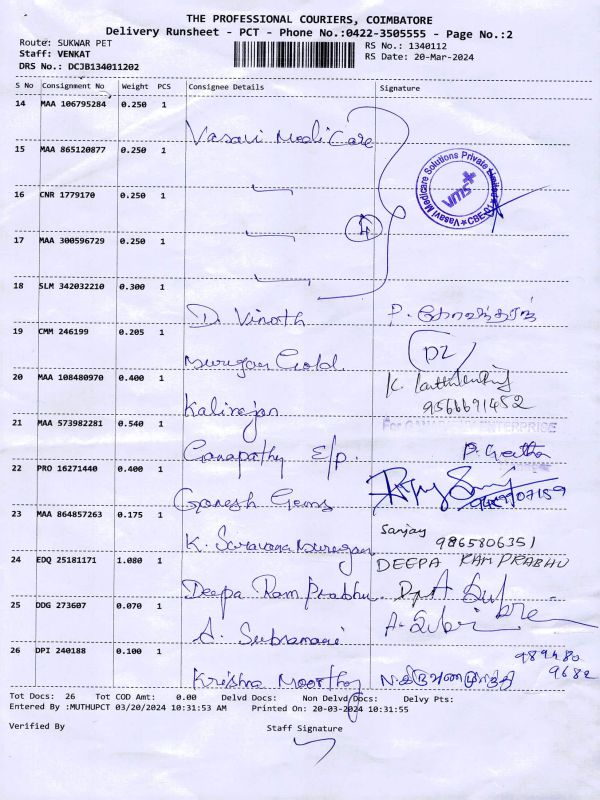 THE PROFESSIONAL COURIERS, COIMBATORE
Delivery Runsheet - PCT - Phone No.:0422-3505555 - Page No.:2
Route: SUKWAR PET
Staff: VENKAT
DRS No.: DCJB134011202
RS No.: 1340112
RS Date: 20-Mar-2024
S No Consignment No Weight PCS Consignee Details Signature
14 MAA 106795284 0.250 1
Vasavi Medi Care
15 MAA 865120877 0.250 1
Vasavi Medicare Solutions Private Limited ★ CBE-01 ★
vms+
16 CNR 1779170 0.250 1
4
17 MAA 300596729 0.250 1
18 SLM 342032210 0.300 1
D. Vinoth P.
19 CMM 246199 0.205 1
Murugan Gold DZ
20 MAA 108480970 0.400 1
K.
Kalirajan 9566691452
21 MAA 573982281 0.540 1
For ENTERPRISE
Ganapathy E/p. P. Geetha
22 PRO 16271440 0.400 1
Ganesh Gems
23 MAA 864857263 0.175 1
Sanjay
K. Saravana Murugan 9865806351
24 EDQ 25181171 1.080 1
DEEPA RAM PRABHU
Deepa Ram Prabhu
25 DDG 273607 0.070 1
A. Subramani
26 DPI 240188 0.100 1
989480
9682
Krishna Moorthy
Tot Docs: 26 Tot COD Amt: 0.00 Delvd Docs: Non Delvd/Docs: Delvy Pts:
Entered By :MUTHUPCT 03/20/2024 10:31:53 AM Printed On: 20-03-2024 10:31:55
Verified By Staff Signature